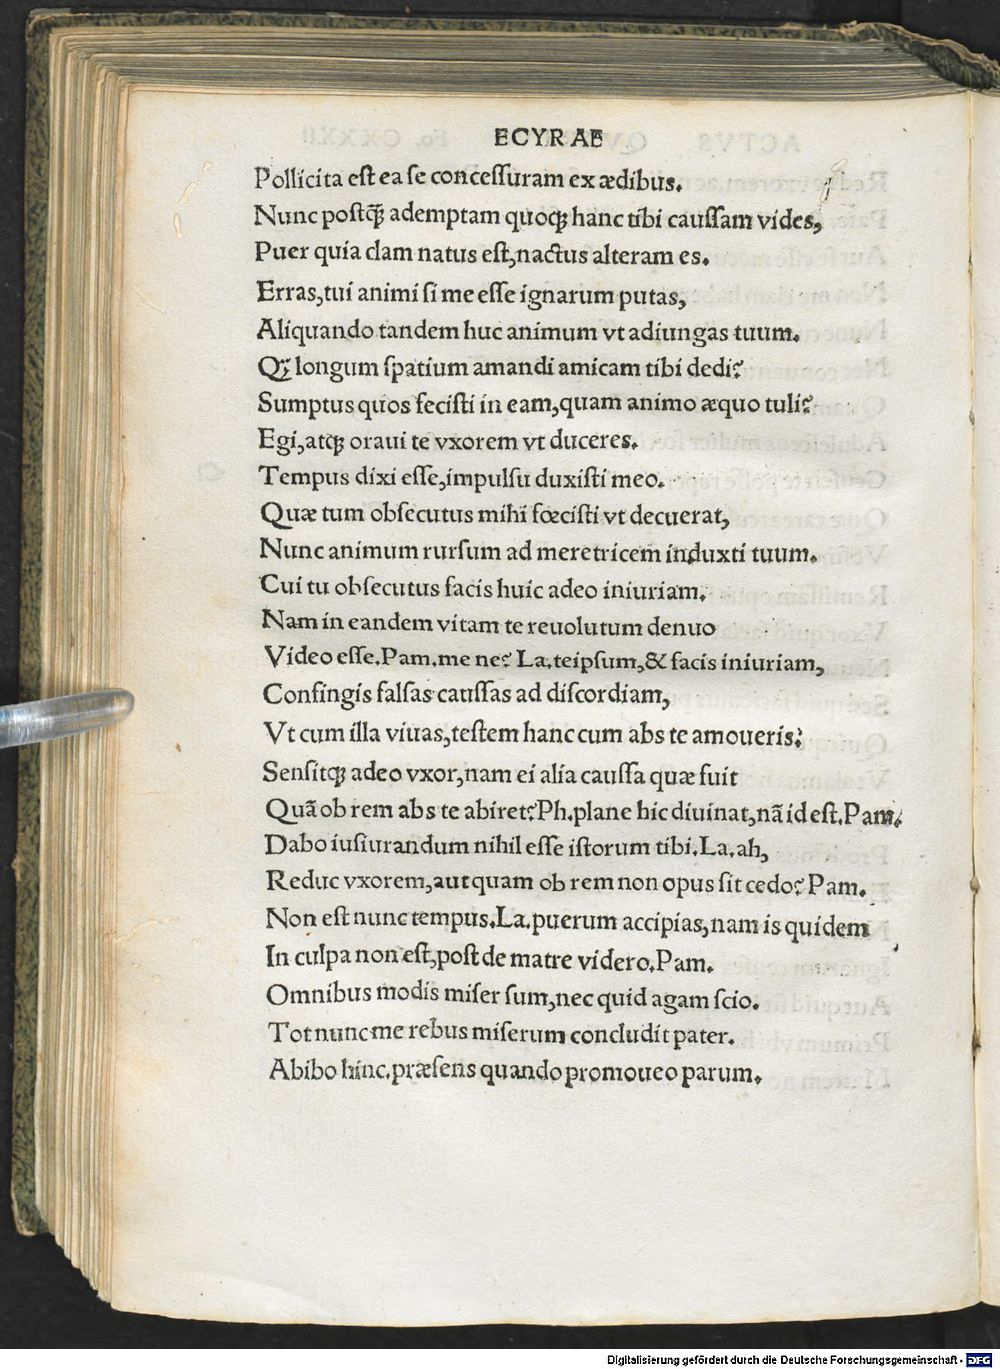 ECYRAE
Pollicita est ea se concessuram ex ædibus.
Nunc postq̃ ademptam quoqꝫ hanc tibi caussam vides,
Puer quia clam natus est, nactus alteram es.
Erras, tui animi si me esse ignarum putas,
Aliquando tandem huc animum vt adiungas tuum.
Qꝫ longum spatium amandi amicam tibi dedi?
Sumptus quos fecisti in eam, quam animo æquo tuli?
Egi, atqꝫ oraui te vxorem vt duceres.
Tempus dixi esse, impulsu duxisti meo.
Quæ tum obsecutus mihi fœcisti vt decuerat,
Nunc animum rursum ad meretricem induxti tuum.
Cui tu obsecutus facis huic adeo iniuriam.
Nam in eandem vitam te reuolutum denuo
Video esse. Pam. me ne? La. teipsum, & facis iniuriam,
Confingis falsas caussas ad discordiam,
Vt cum illa viuas, testem hanc cum abs te amoueris?
Sensitqꝫ adeo vxor, nam ei alia caussa quæ fuit
Quã ob rem abs te abiret? Ph. plane hic diuinat, nã id est. Pam.
Dabo iusiurandum nihil esse istorum tibi. La. ah,
Reduc vxorem, aut quam ob rem non opus sit cedo? Pam.
Non est nunc tempus. La. puerum accipias, nam is quidem
In culpa non est, post de matre videro. Pam.
Omnibus modis miser sum, nec quid agam scio.
Tot nunc me rebus miserum concludit pater.
Abibo hinc. præsens quando promoueo parum.
Digitalisierung gefördert durch die Deutsche Forschungsgemeinschaft - DFG